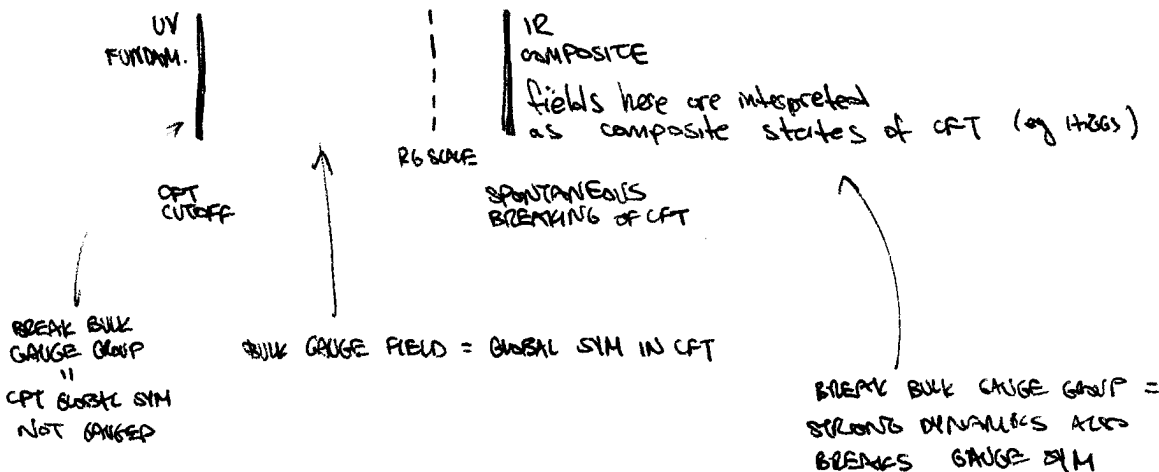 UV
FUNDAM.
IR
COMPOSITE
fields here are interpreted
as composite states of CFT (eg HIGGS)
RG SCALE
CFT
CUTOFF
SPONTANEOUS
BREAKING OF CFT
BREAK BULK
GAUGE GROUP
"
CFT GLOBAL SYM
NOT GAUGED
BULK GAUGE FIELD = GLOBAL SYM IN CFT
BREAK BULK GAUGE GROUP =
STRONG DYNAMICS ALSO
BREAKS GAUGE SYM